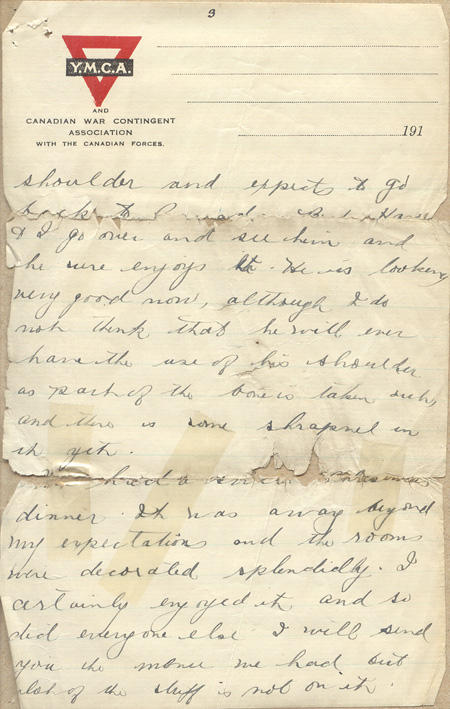 3
Y.M.C.A.
AND
CANADIAN WAR CONTINGENT
ASSOCIATION
WITH THE CANADIAN FORCES.
191
shoulder and expects to go
back to
& I go over and see him and
he sure enjoys it. He is looking
very good now, although I do
not think that he will ever
have the use of his shoulder
as part of the bone is taken out,
and there is some shrapnel in
it yet.
had a Christmas
dinner. It was away beyond
my expectations and the rooms
were decorated splendidly. I
certainly enjoyed it and so
did everyone else I will send
you the menue we had but
alot of the stuff is not on it.